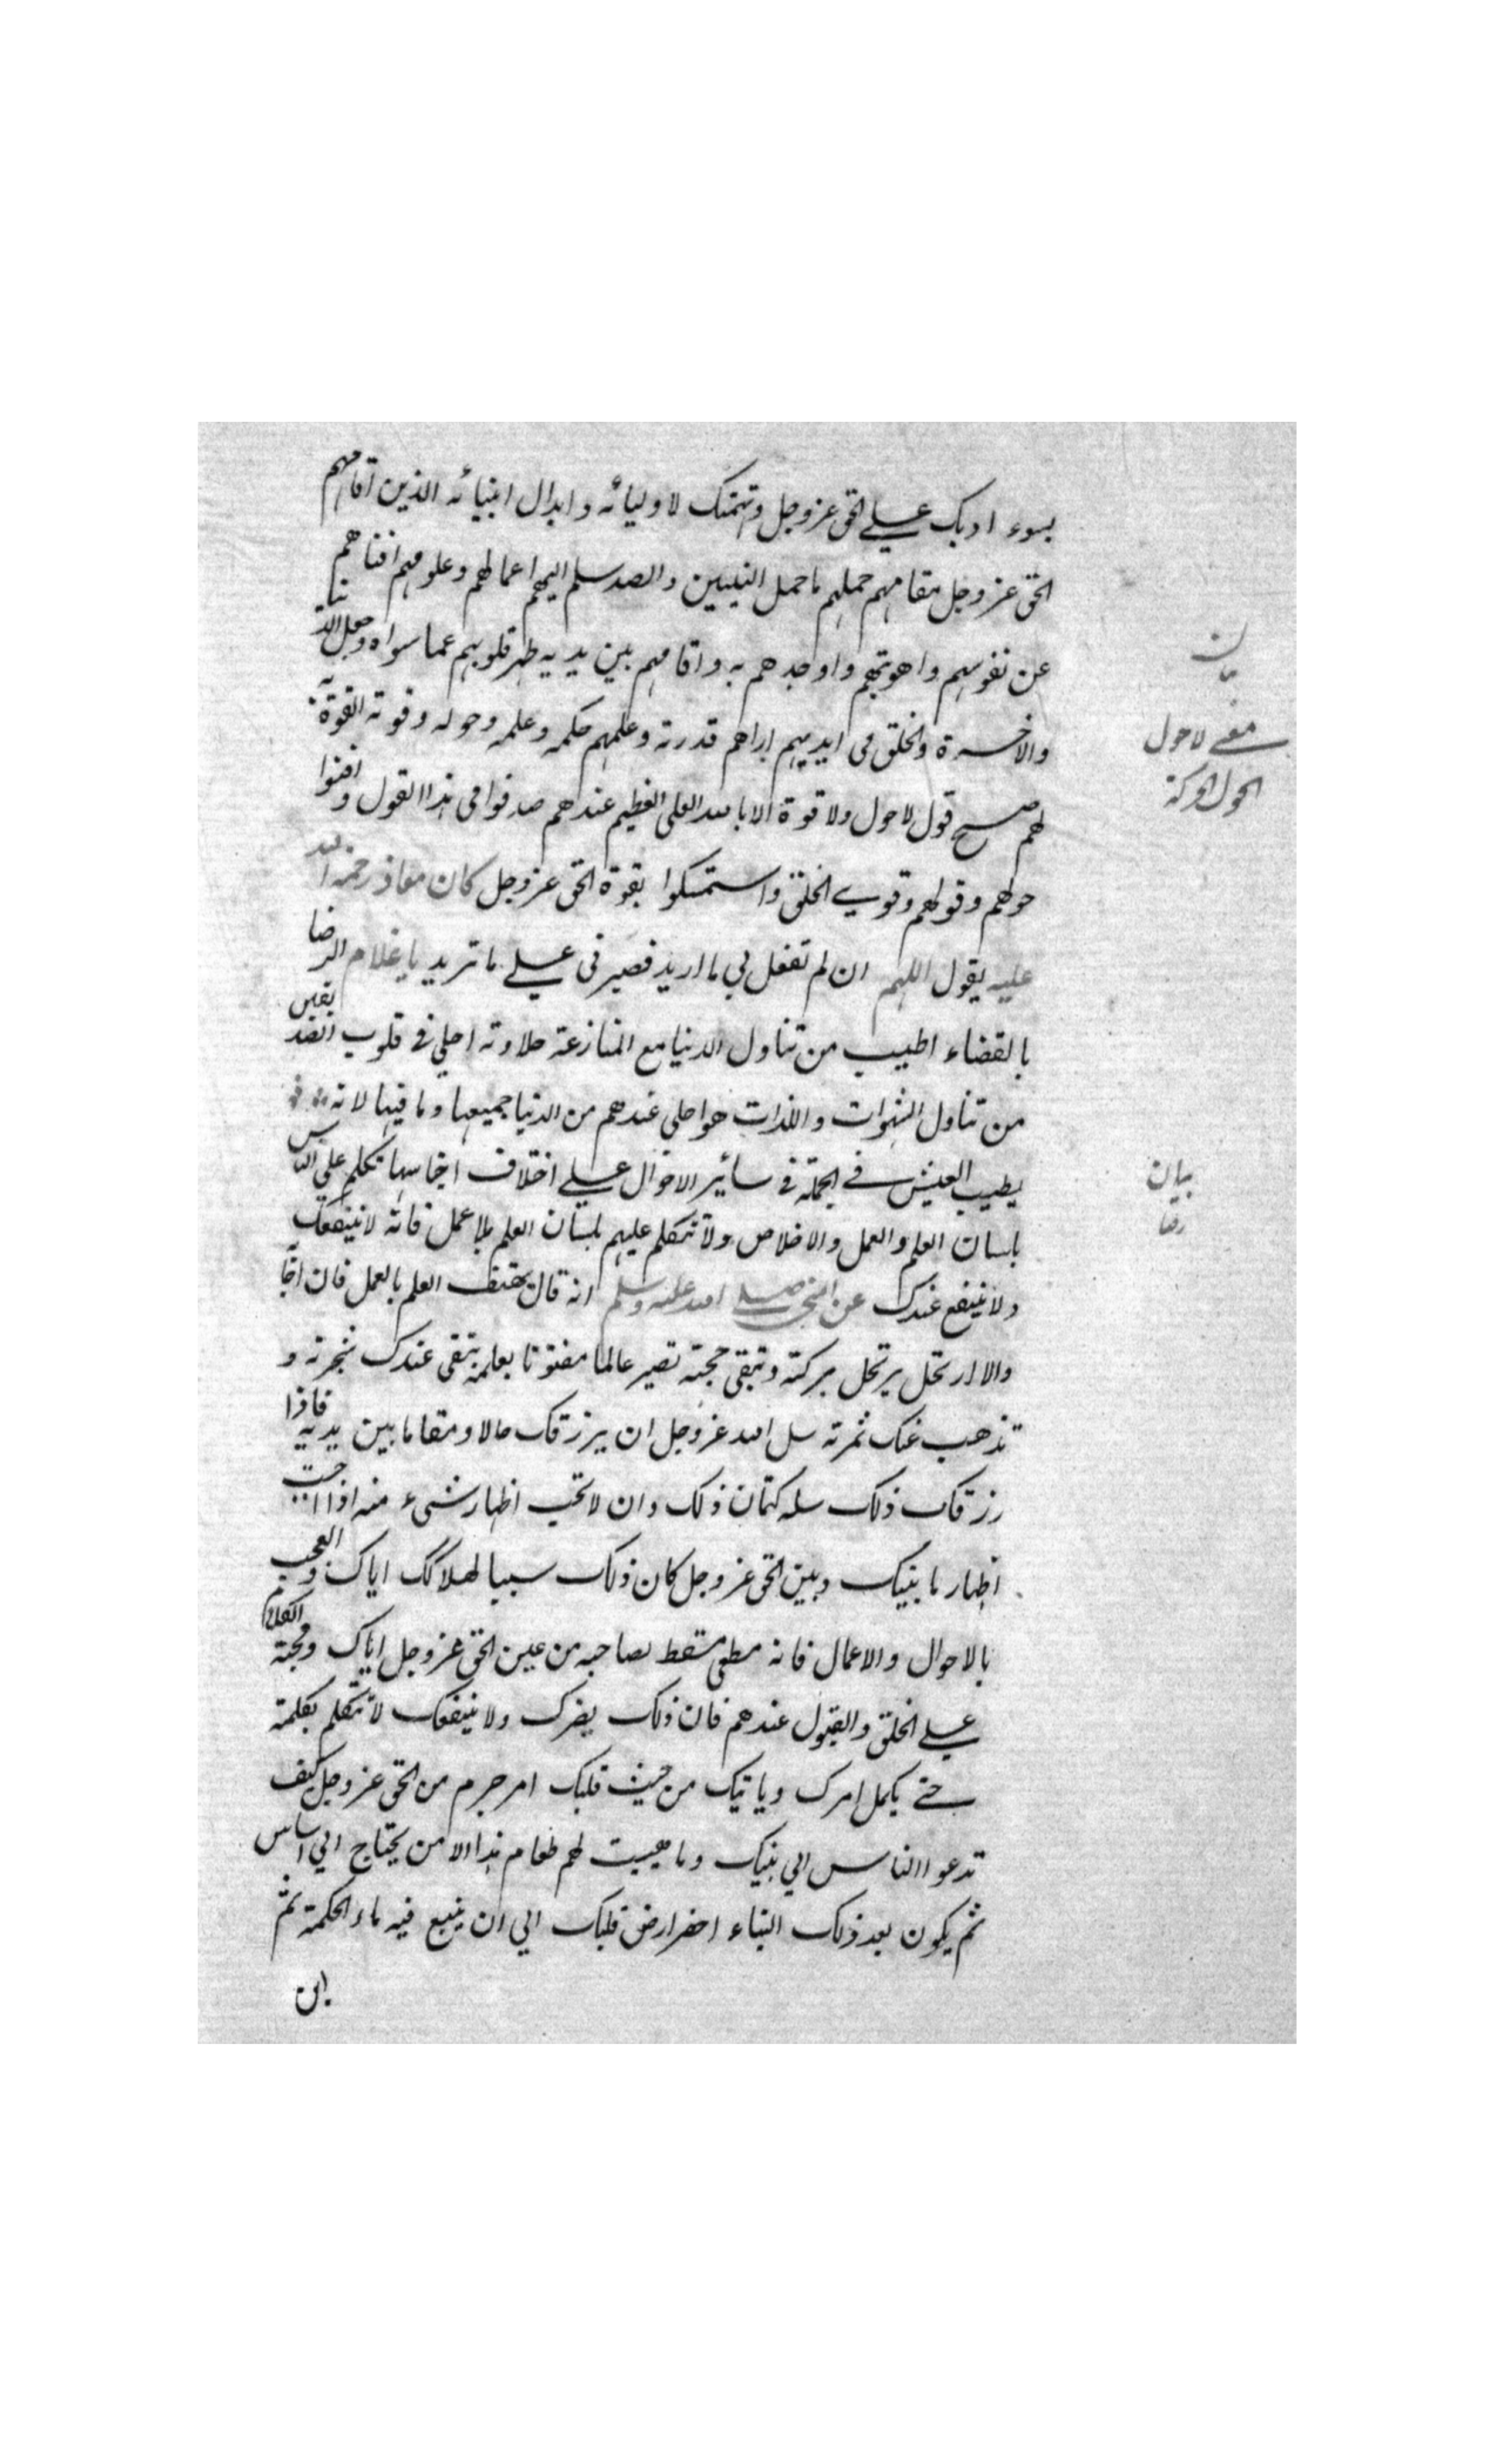 بسوء ادبك علي الحق عز وجل وتهمتك لاوليائه وابدال انبيائه الذين اقامهم
الحق عز وجل مقامهم حملهم ما حمل النبيين والصد سلم اليهم اعمالهم وعلومهم افناهم
عن نفوسهم واهويتهم واوجدهم به واقامهم بين يديه طهر قلوبهم عما سواه وجعل الدنيا
والاخرة والخلق في ايديهم اراهم قدرته وعلمهم حكمه وعلمه وحوله وقوته القوة
لهم صح قول لا حول ولا قوة الا بالله العلي العظيم عندهم صدقوا في هذا القول وافنوا
حولهم وقولهم وقوي الخلق واستمسكوا بقوة الحق عز وجل كان معاذ رحمة الله
عليه يقول اللهم ان لم تفعل بي ما اريد فصبرني علي ما تريد يا غلام الرضا
بالقضاء اطيب من تناول الدنيا مع المنازعة حلاوته احلي في قلوب الصديقين
من تناول الشهوات واللذات هو احلي عندهم من الدنيا جميعها وما فيها لانه
يطيب العيش في الجملة في سائر الاحوال علي اختلاف اجناسها تكلم علي الناس
بلسان العلم والعمل والاخلاص ولا تتكلم عليهم بلسان العلم بلا عمل فانه لا ينفعك
ولا ينفع عندك عن النبي صلي الله عليه وسلم انه قال يهتف العلم بالعمل فان اجابه
والا ارتحل يرتحل بركته وتبقي حجته تصير عالما مفتونا بعلمه تبقي عندك شجرته و
تذهب عنك ثمرته سل الله عز وجل ان يرزقك حالا ومقاما بين يديه فاذا
رزقك ذلك سله كتمان ذلك وان لا تحب اظهار شيء منه اذا احببت
اظهار ما بينك وبين الحق عز وجل كان ذلك سببا لهلاكك اياك والعجب
بالاحوال والاعمال فانه مطغ مسقط لصاحبه من عين الحق عز وجل اياك ومحبة الكلام
علي الخلق والقبول عندهم فان ذلك يضرك ولا ينفعك لا تتكلم بكلمة
حتي يكمل امرك وياتيك من حيث قلبك امر جرم من الحق عز وجل كيف
تدعو الناس الي بيتك وما هييت لهم طعام هذا الامن يحتاج الي اساس
ثم يكون بعد ذلك البناء احفر ارض قلبك الي ان ينبع فيه ماء الحكمة ثم
ابن
بيان
معني لا حول
الحول الحركة
بيان
رضا